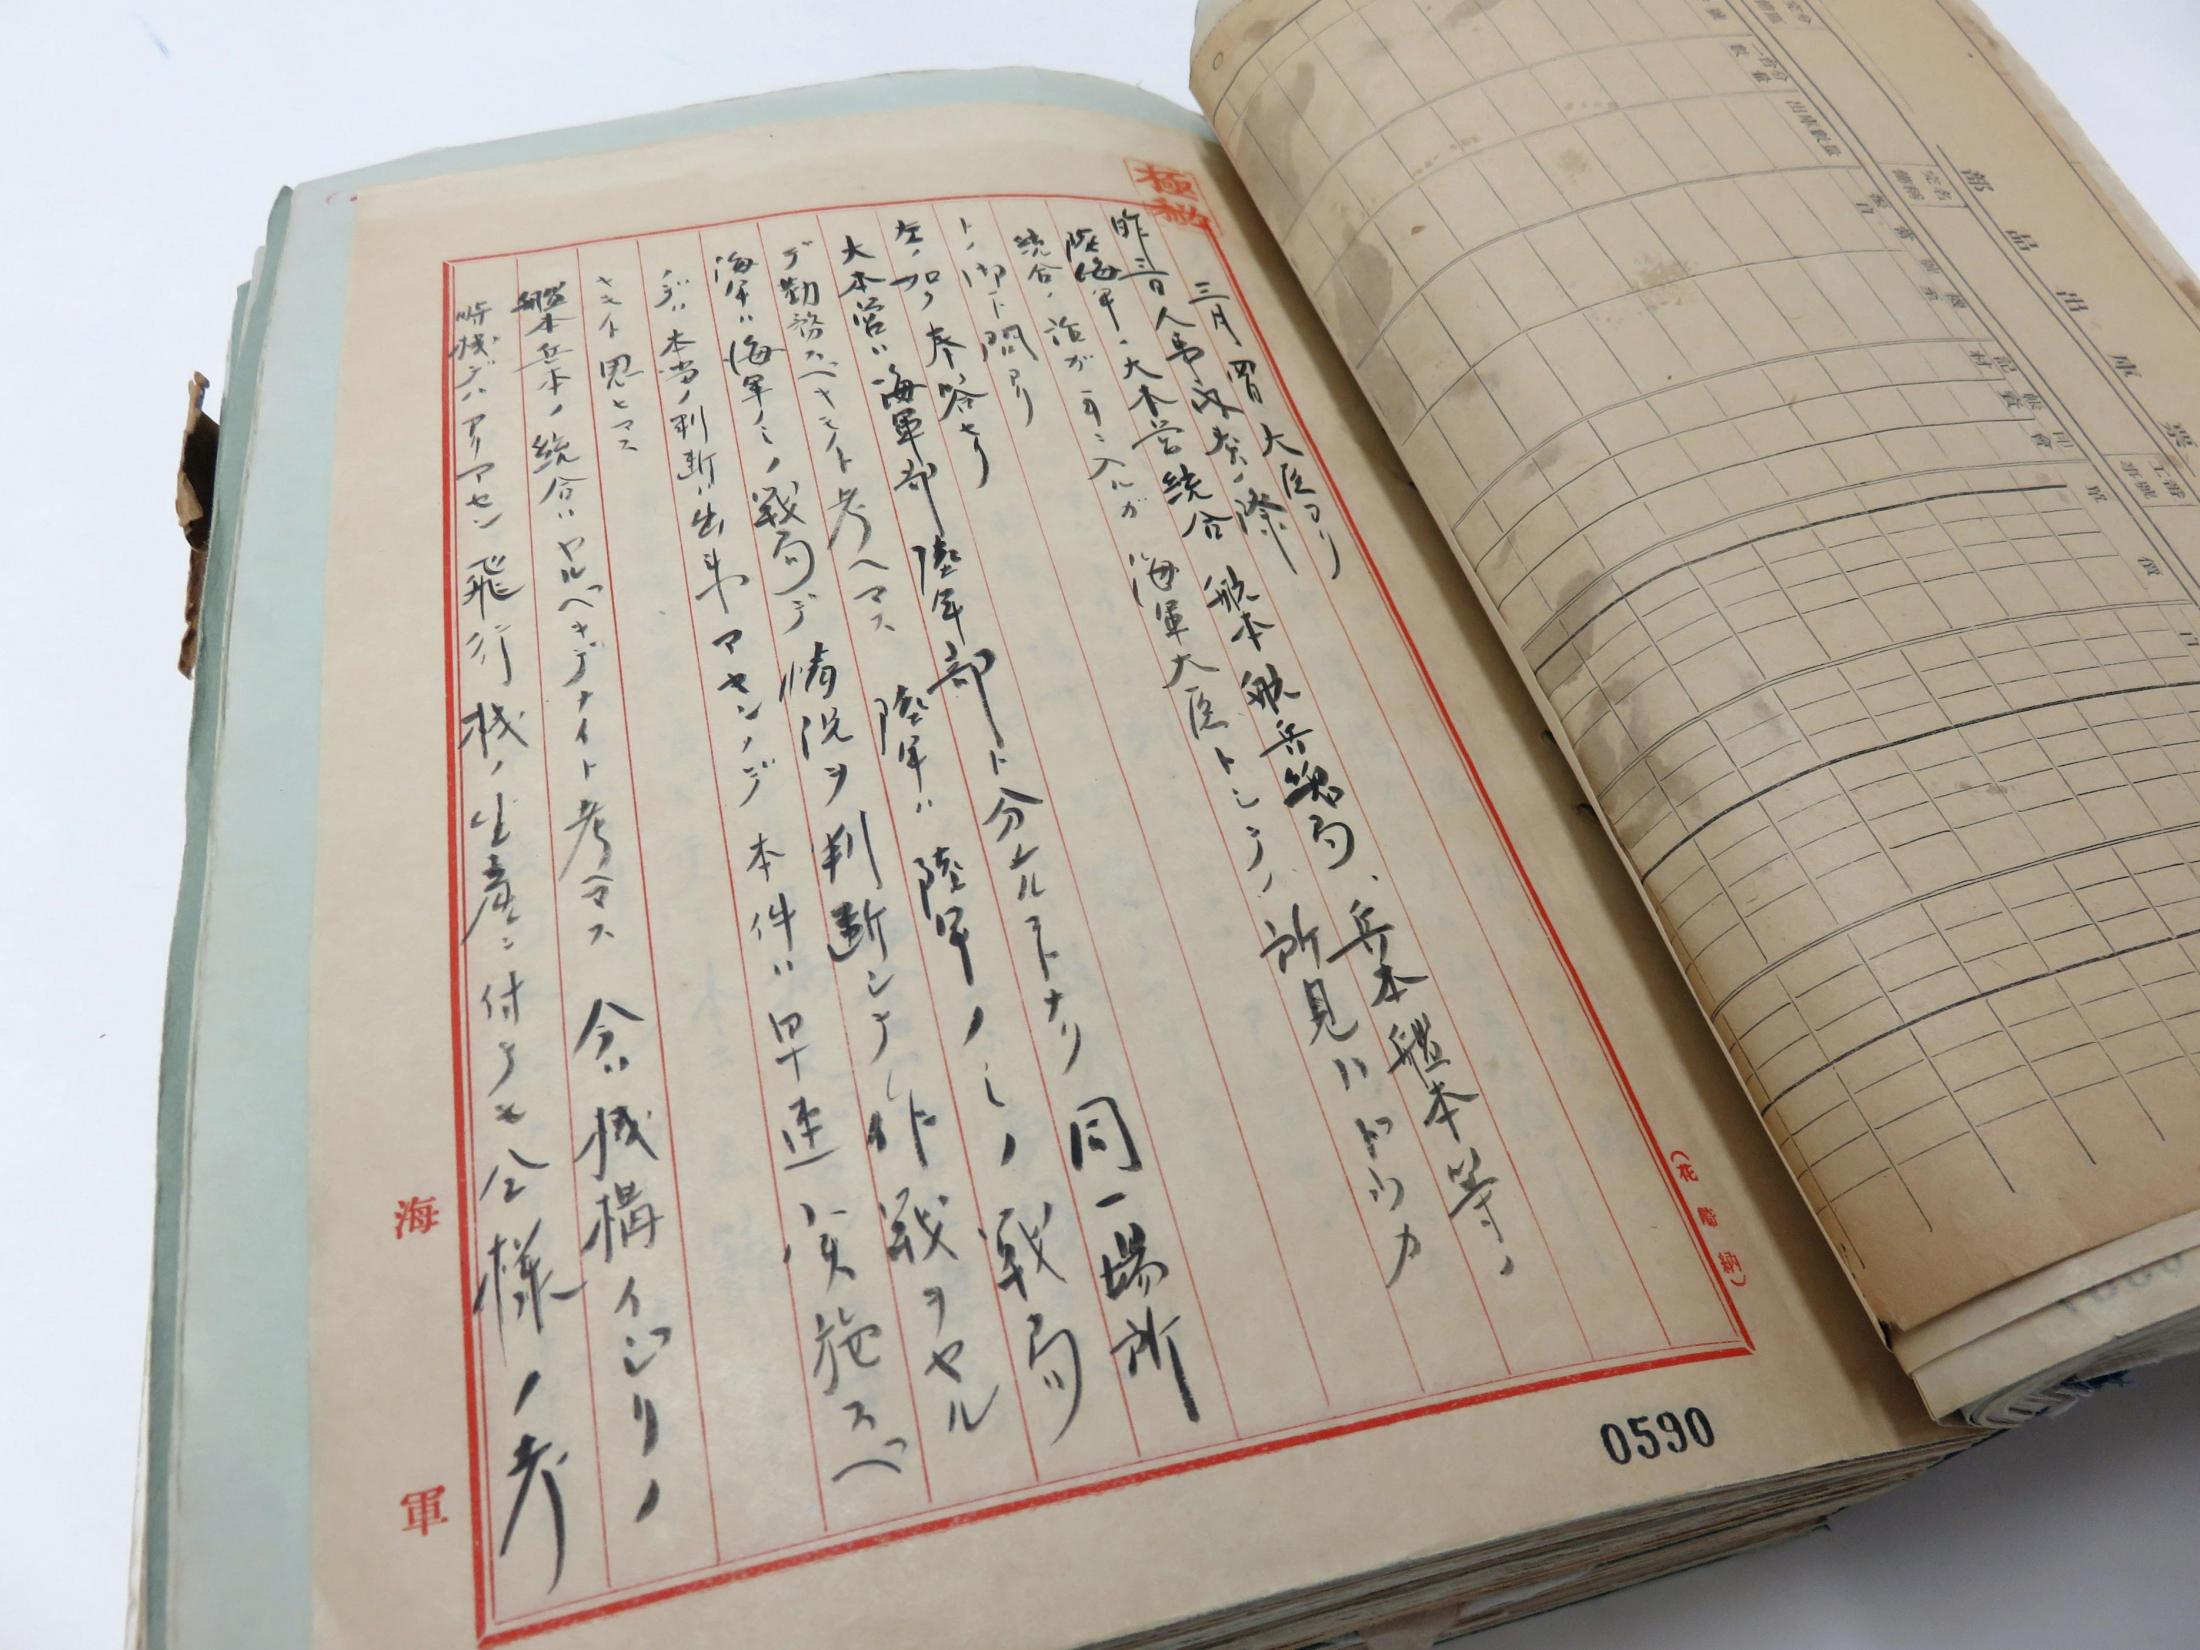 極秘
三月四日大臣ヨリ
昨三日人事内奏ノ際
陸海軍、大本営統合 航本航兵総局、兵本艦本等ノ
統合ノ話ガ耳ニ入ルガ 海軍大臣トシテノ所見ハドウカ
トノ御下問アリ
左ノ如ク奉答セリ
大本営ハ海軍部陸軍部ト分ルルコトナク同一場所
デ勤務スベキモノト考ヘマス 陸軍ハ陸軍ノミノ戦局
海軍ハ海軍ノミノ戦局デ情況ヲ判断シテ作戦ヲヤル
ノデハ本当ノ判断ハ出来マセンノデ本件ハ早速ニ実施スベ
キモノト思ヒマス
艦本兵本ノ統合ハヤルベキデナイト考ヘマス 今ハ機構イジリノ
時機デハアリマセン飛行機ノ生産ニ付テモ仝様ノ考
海軍
(花崎納)
0590
部品出庫票
出庫数量
單價